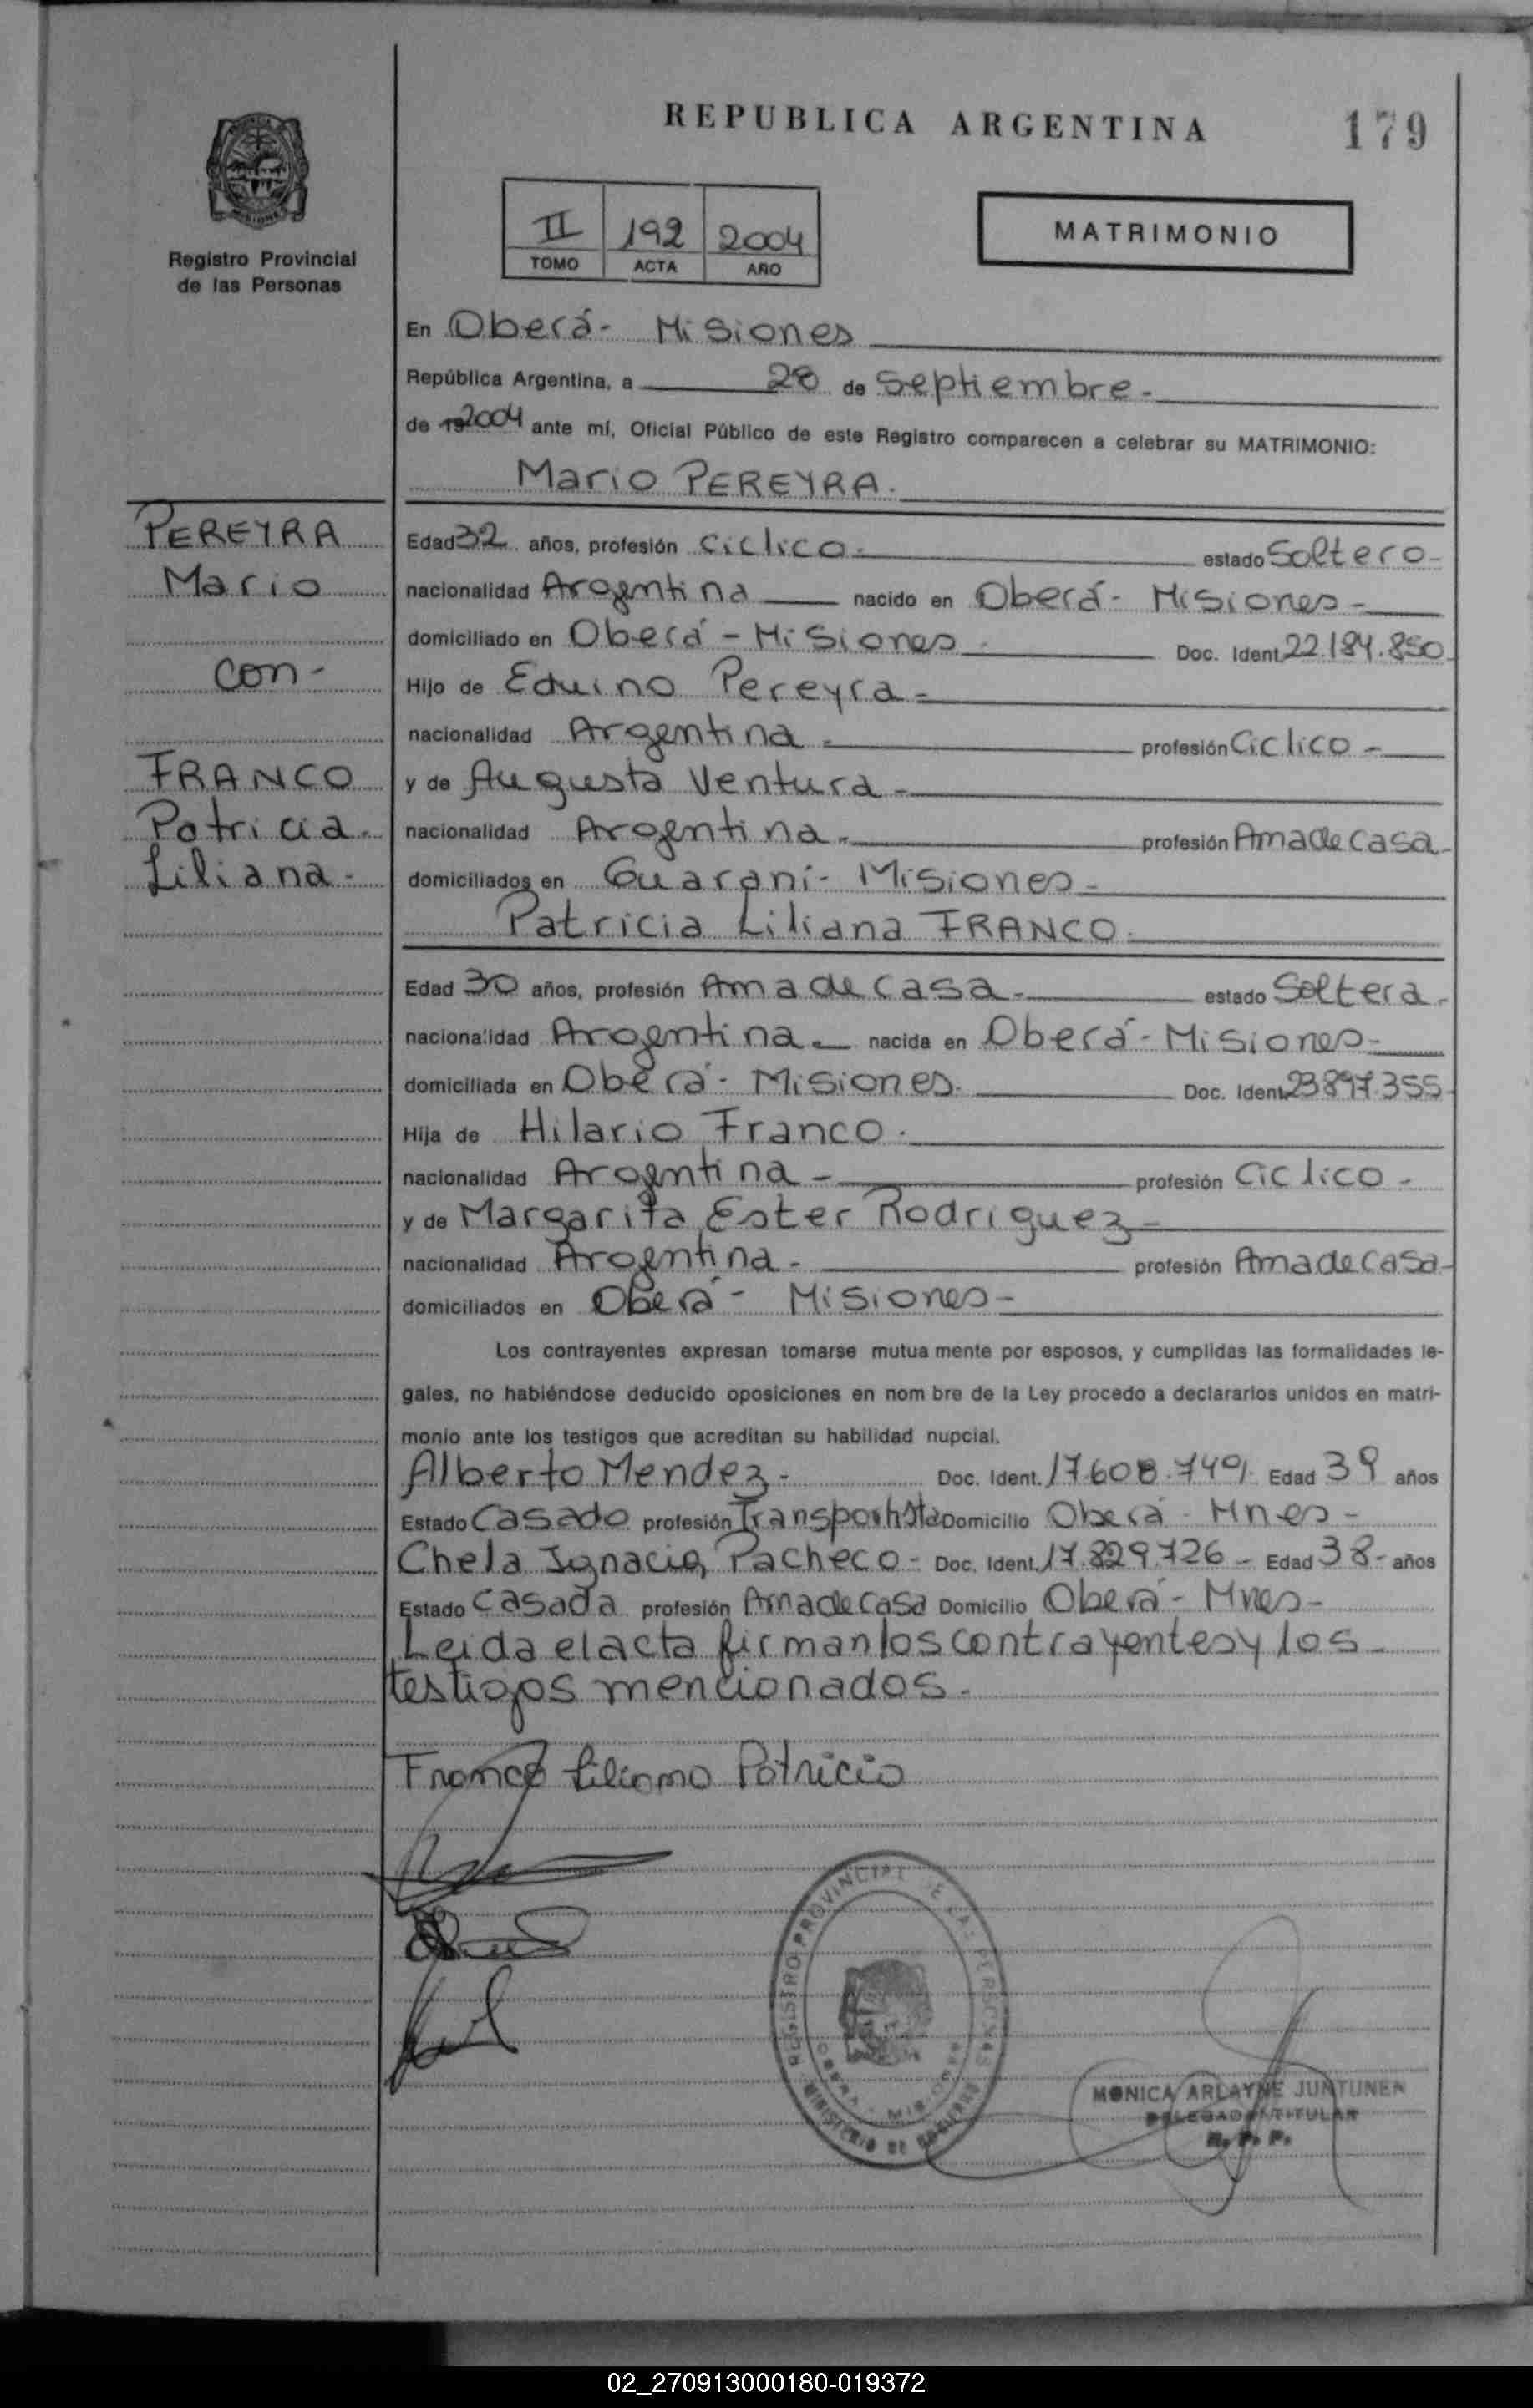 REPUBLICA ARGENTINA
179
Registro Provincial
de las Personas
II 192 2004
TOMO ACTA AÑO
MATRIMONIO
En Oberá- Misiones
República Argentina, a 28 de Septiembre-
de 192004 ante mí, Oficial Público de este Registro comparecen a celebrar su MATRIMONIO:
Mario PEREYRA.
PEREYRA
Mario
con-
FRANCO
Patricia.
Liliana-
Edad 32 años, profesión Ciclico- estado Soltero-
nacionalidad Argentina nacido en Oberá- Misiones-
domiciliado en Oberá-Misiones- Doc. Ident. 22.184.850
Hijo de Eduino Pereyra-
nacionalidad Argentina- profesión Ciclico-
y de Augusta Ventura-
nacionalidad Argentina- profesión Ama de casa-
domiciliados en Guaraní- Misiones-
Patricia Liliana FRANCO.
Edad 30 años, profesión Ama de casa- estado Soltera-
nacionalidad Argentina- nacida en Oberá-Misiones-
domiciliada en Oberá- Misiones. Doc. Ident. 23897.355
Hija de Hilario Franco.
nacionalidad Argentina- profesión Ciclico-
y de Margarita Ester Rodriguez-
nacionalidad Argentina- profesión Ama de casa-
domiciliados en Oberá- Misiones-
Los contrayentes expresan tomarse mutua mente por esposos, y cumplidas las formalidades le-
gales, no habiéndose deducido oposiciones en nom bre de la Ley procedo a declararlos unidos en matri-
monio ante los testigos que acreditan su habilidad nupcial.
Alberto Mendez- Doc. Ident. 17.608.749. Edad 39 años
Estado Casado profesión Transportista Domicilio Oberá- Mnes-
Chela Ignacia Pacheco- Doc. Ident. 17.829.726- Edad 38- años
Estado Casada profesión Ama de casa Domicilio Oberá- Mnes-
Leída el acta firman los contrayentes y los-
testigos mencionados-
Franco Liliana Patricia
REGISTRO PROVINCIAL DE LAS PERSONAS
OBERA - MISIONES
MINISTERIO DE GOBIERNO
MONICA ARLAYNE JUNTUNEN
DELEGADA TITULAR
R. P. P.
02_270913000180-019372